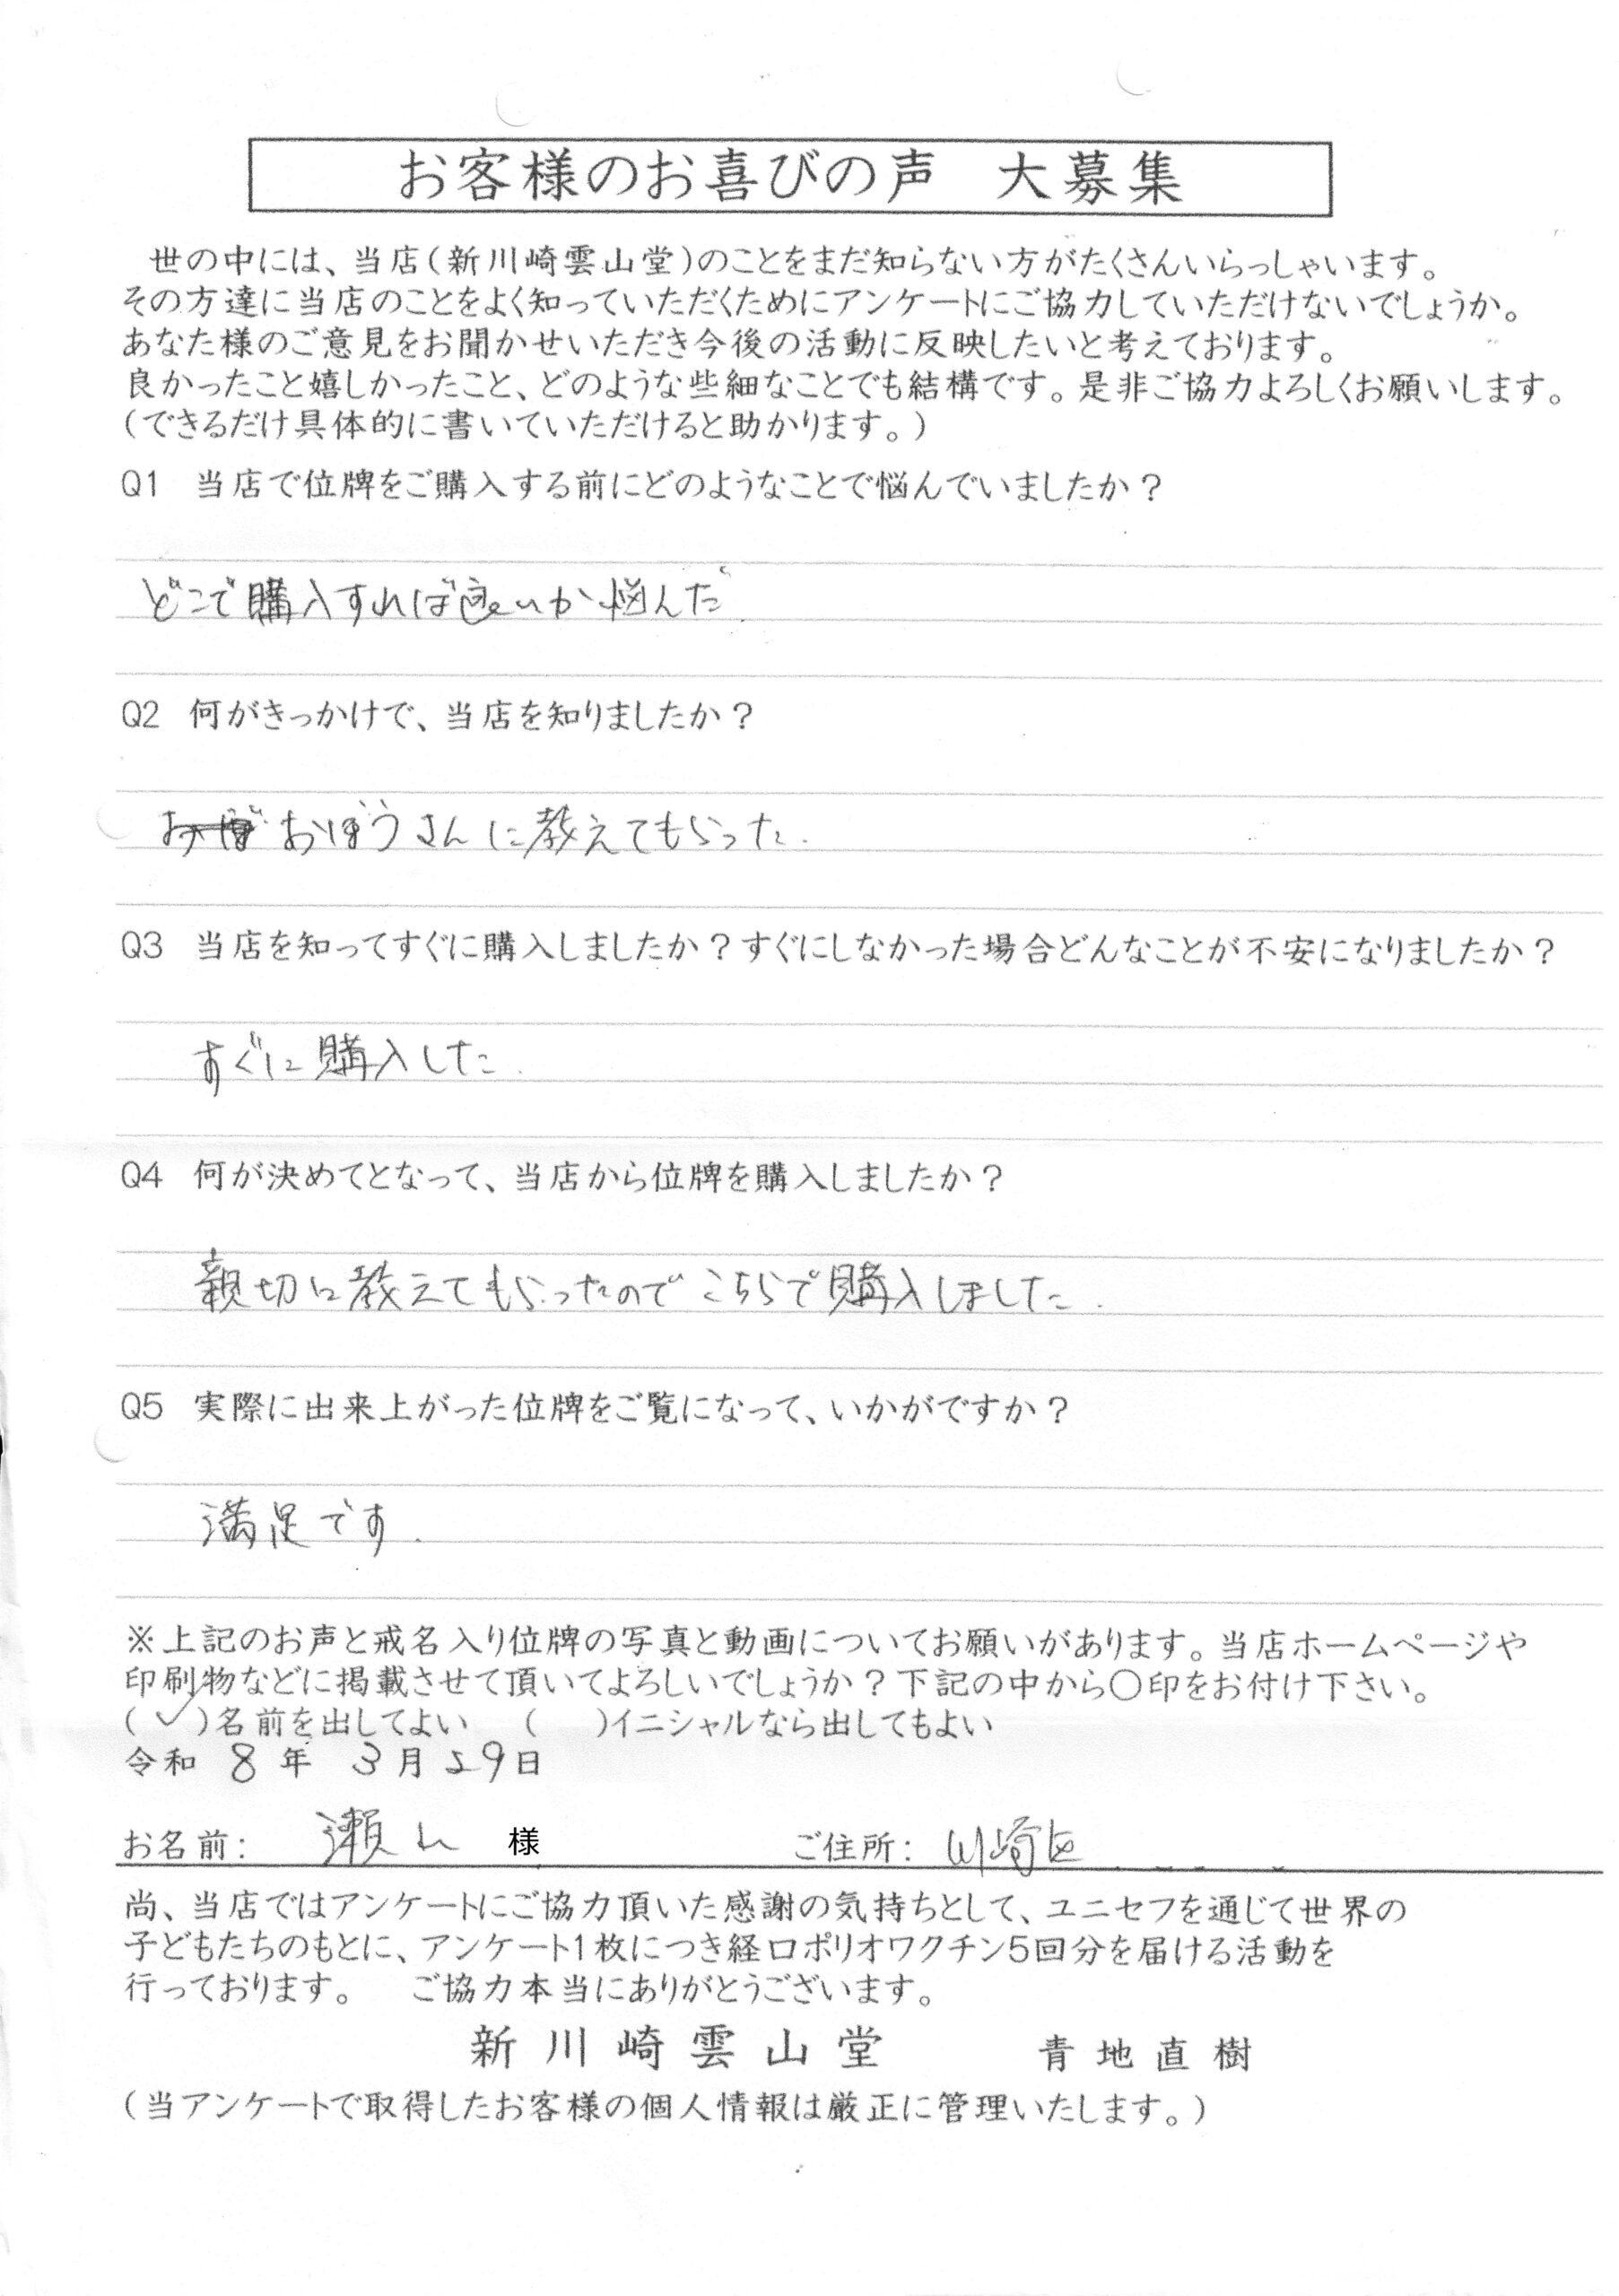 お客様のお喜びの声　大募集
世の中には、当店（新川崎雲山堂）のことをまだ知らない方がたくさんいらっしゃいます。
その方達に当店のことをよく知っていただくためにアンケートにご協力していただけないでしょうか。
あなた様のご意見をお聞かせいただき今後の活動に反映したいと考えております。
良かったこと嬉しかったこと、どのような些細なことでも結構です。是非ご協力よろしくお願いします。
（できるだけ具体的に書いていただけると助かります。）
Q1　当店で位牌をご購入する前にどのようなことで悩んでいましたか？
どこで購入すれば良いか悩んだ.
Q2　何がきっかけで、当店を知りましたか？
おぼうさんに教えてもらった.
Q3　当店を知ってすぐに購入しましたか？すぐにしなかった場合どんなことが不安になりましたか？
すぐに購入した.
Q4　何が決めてとなって、当店から位牌を購入しましたか？
親切に教えてもらったのでこちらで購入しました.
Q5　実際に出来上がった位牌をご覧になって、いかがですか？
満足です.
※上記のお声と戒名入り位牌の写真と動画についてお願いがあります。当店ホームページや
印刷物などに掲載させて頂いてよろしいでしょうか？下記の中から〇印をお付け下さい。
（✓）名前を出してよい　（　）イニシャルなら出してもよい
令和 8 年 3 月 29 日
お名前： 瀬 様　ご住所： 川崎区
尚、当店ではアンケートにご協力頂いた感謝の気持ちとして、ユニセフを通じて世界の
子どもたちのもとに、アンケート1枚につき経口ポリオワクチン5回分を届ける活動を
行っております。　ご協力本当にありがとうございます。
新川崎雲山堂　青地直樹
（当アンケートで取得したお客様の個人情報は厳正に管理いたします。）